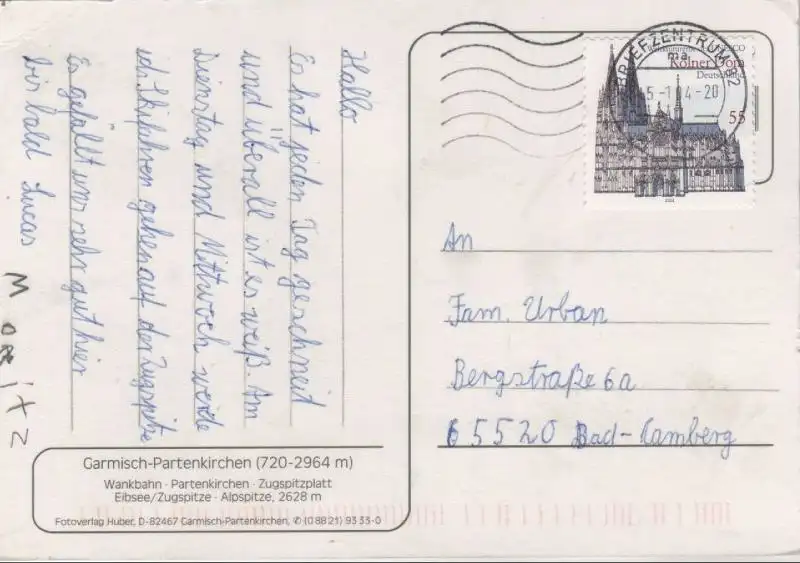 Hallo
Es hat jeden Tag geschneit
und überall ist es weiß. Am
Dienstag und Mittwoch werde
ich Skifahren gehen auf der Zugspitze
Es gefällt uns sehr gut hier
Bis bald Lucas
Moritz
Garmisch-Partenkirchen (720-2964 m)
Wankbahn · Partenkirchen · Zugspitzplatt
Eibsee/Zugspitze · Alpspitze, 2628 m
Fotoverlag Huber, D-82467 Garmisch-Partenkirchen, ✆ (0 88 21) 93 33-0
BRIEFZENTRUM 82
ma
5-1.04-20
UNESCO
Kölner Dom
Deutschland
55
An
Fam. Urban
Bergstraße 6a
65520 Bad-Camberg